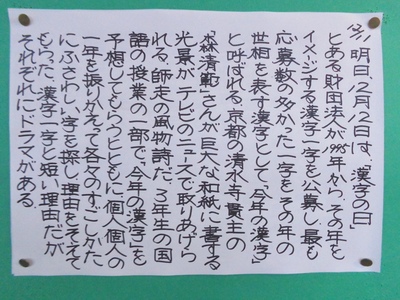 12/11 明日、12月12日は、「漢字の日」
とある財団法人が、1995年から、その年を
イメージする漢字一字を公募し、最も
応募数の多かった一字を、その年の
世相を表す漢字として「今年の漢字」
と呼ばれる。京都の清水寺貫主の
「森清範」さんが巨大な和紙に書する
光景が、テレビのニュースで取りあげら
れる、師走の風物詩だ。3年生の国
語の授業の一部で、「今年の漢字」を
予想してもらうとともに、個人個人の
一年を振りかえって各々のすごしかた
にふさわしい字を探し、理由をそえて
もらった。漢字一字と短い理由だが
それぞれにドラマがある。